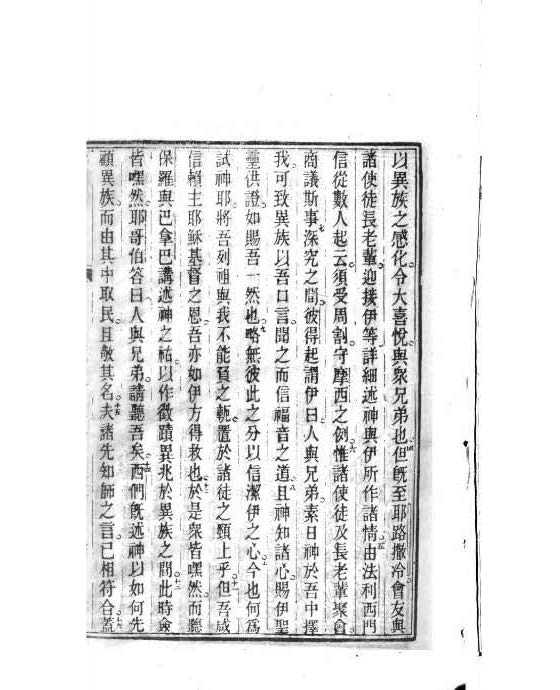 以異族之感化令大喜悅與眾兄弟也四但旣至耶路撒冷會友與
諸使徒長老輩迎接伊等詳細述神與伊所作諸情五由法利西門
信從數人起云須受周割守摩西之例六惟諸使徒及長老輩聚會
商議斯事七深究之間彼得起謂伊曰人與兄弟素日神於吾中擇
我可致異族以吾口言聞之而信福音之道八且神知諸心賜伊聖
靈供證如賜吾一然也九略無彼此之分以信潔伊之心十今也何為
試神耶將吾列祖與我不能負之軛置於諸徒之頸上乎十一但吾咸
信賴主耶穌基督之恩吾亦如伊方得救也十二於是眾皆嘿然而聽
保羅與巴拿巴講述神之祐以作徵蹟異兆於異族之間十三此時僉
皆嘿然耶哥伯答曰人與兄弟請聽吾矣十四西們旣述神以如何先
顧異族而由其中取民且敬其名十五夫諸先知師之言已相符合十六蓋